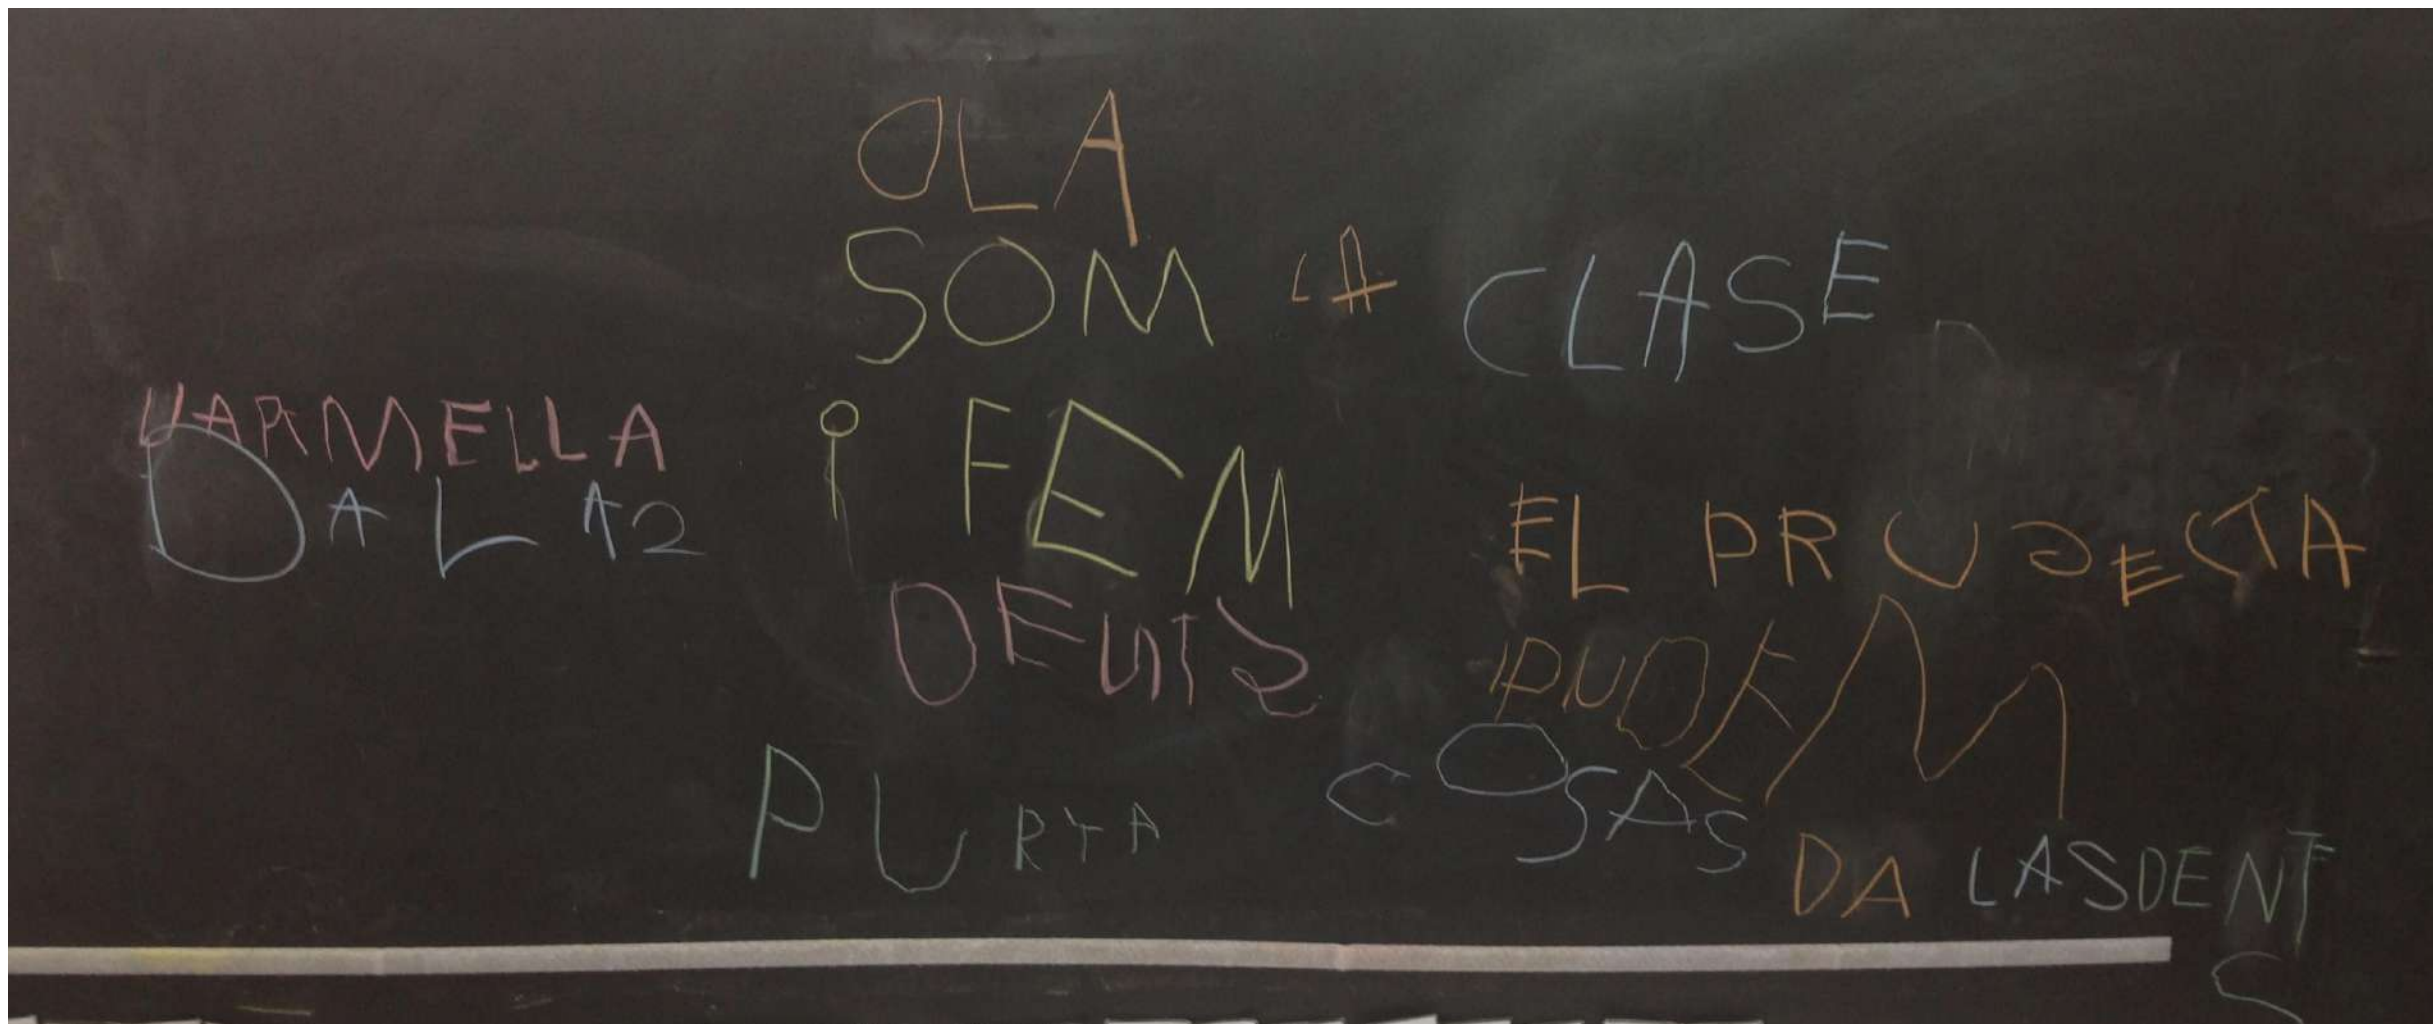 OLA
SOM LA CLASE
VARMELLA
DA LA2
i FEM
EL PRUJECTA
DENTS
PUDEM
PURTA COSAS
DA LASDENT
S